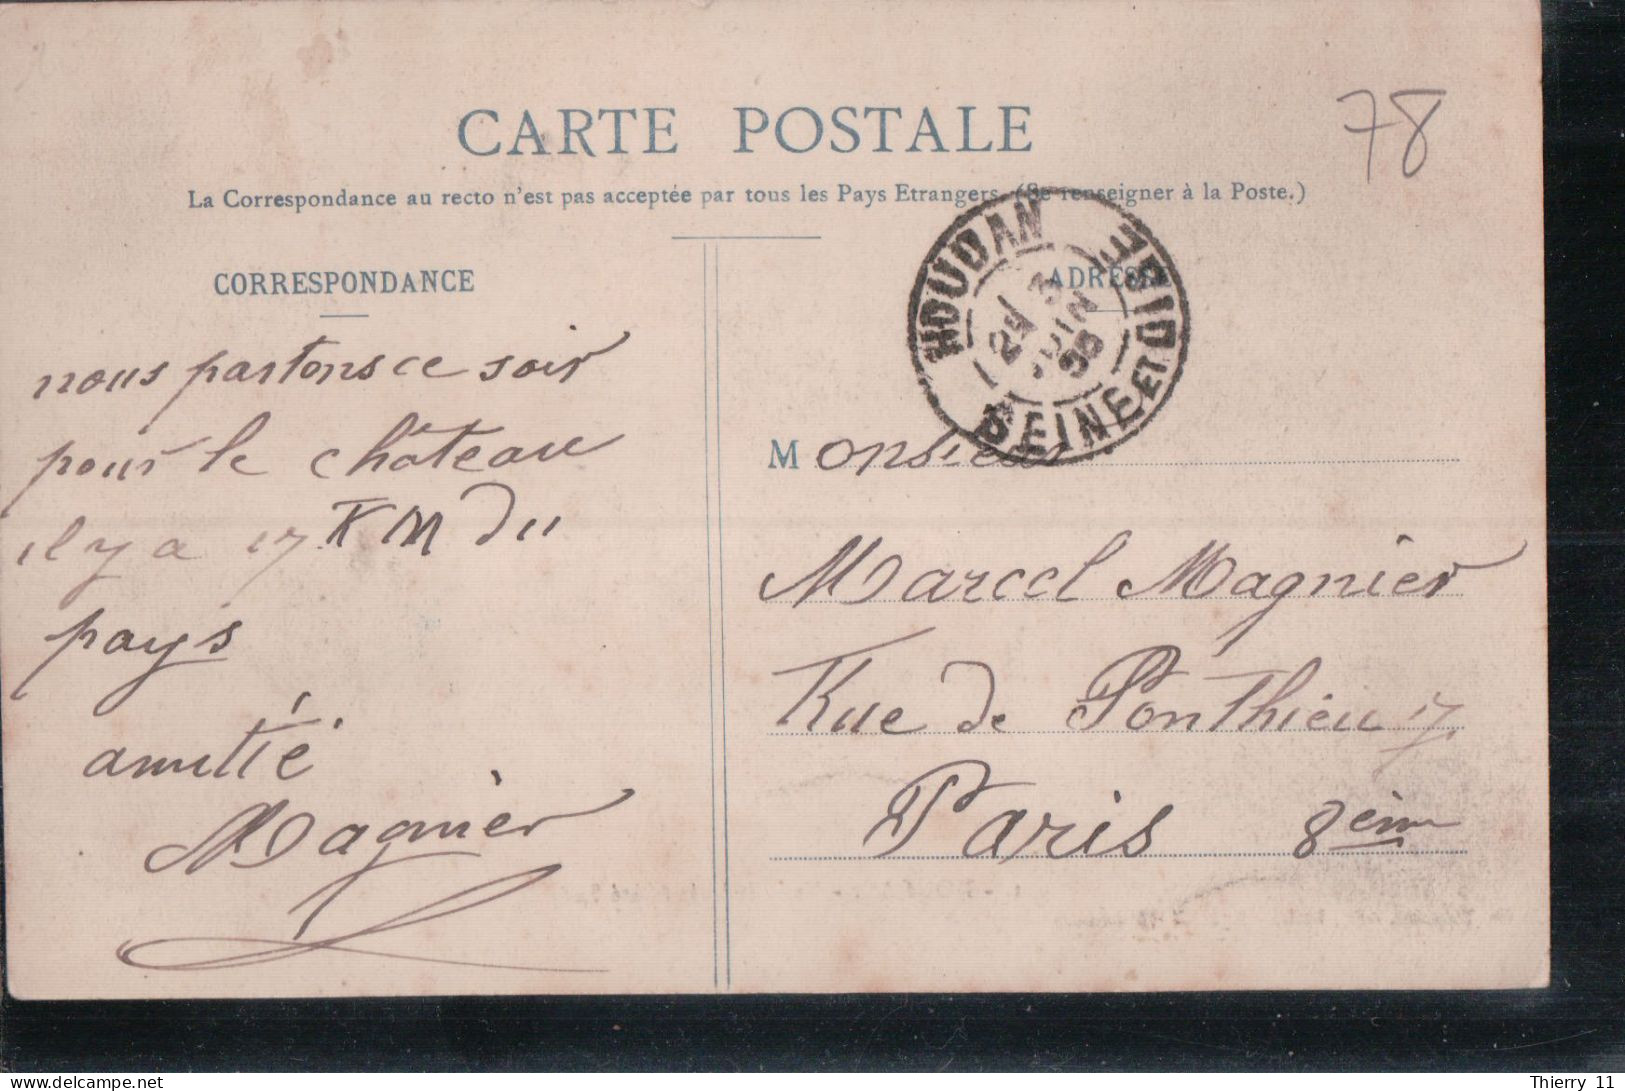 78
CARTE POSTALE
La Correspondance au recto n'est pas acceptée par tous les Pays Etrangers. (Se renseigner à la Poste.)
CORRESPONDANCE
nous partons ce soir
pour le château
il y a 17 KM du
pays
amitié
Magnier
ADRESSE
HOUDAN
JUIN
SEINE ET OISE
Monsieur
Marcel Magnier
Rue de Ponthieu 17
Paris 8ème
Delcampe.net
Thierry 11